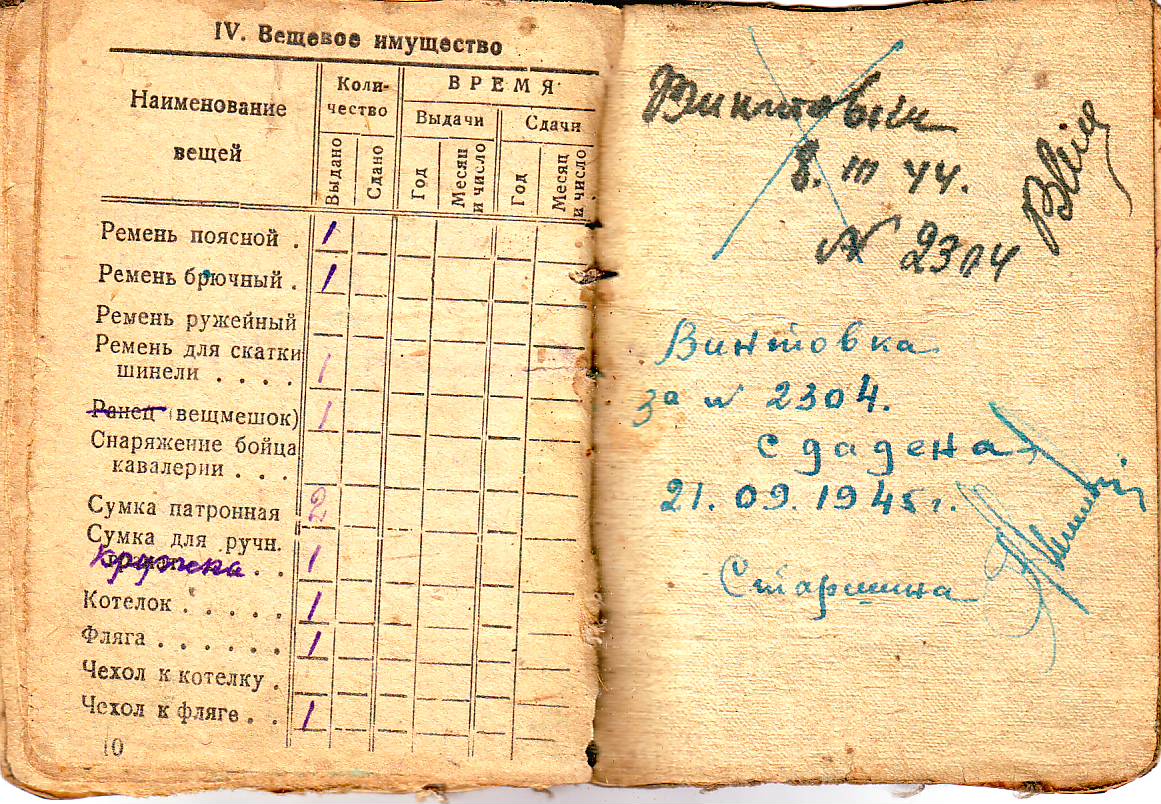 IV. Вещевое имущество
Наименование вещей
Коли-
чество
ВРЕМЯ
Выдачи
Сдачи
Выдано
Сдано
Год
Месяц и число
Год
Месяц и число
Ремень поясной . 1
Ремень брючный . 1
Ремень ружейный
Ремень для скатки
шинели . . . . 1
Ранец (вещмешок) 1
Снаряжение бойца
кавалерии . . .
Сумка патронная 2
Сумка для ручн.
кружка . . 1
Котелок . . . . . 1
Фляга . . . . . . 1
Чехол к котелку .
Чехол к фляге . . 1
10
8. III 44.
N 2304
Винтовка
за N 2304.
сдадена
21.09.1945г.
Старшина